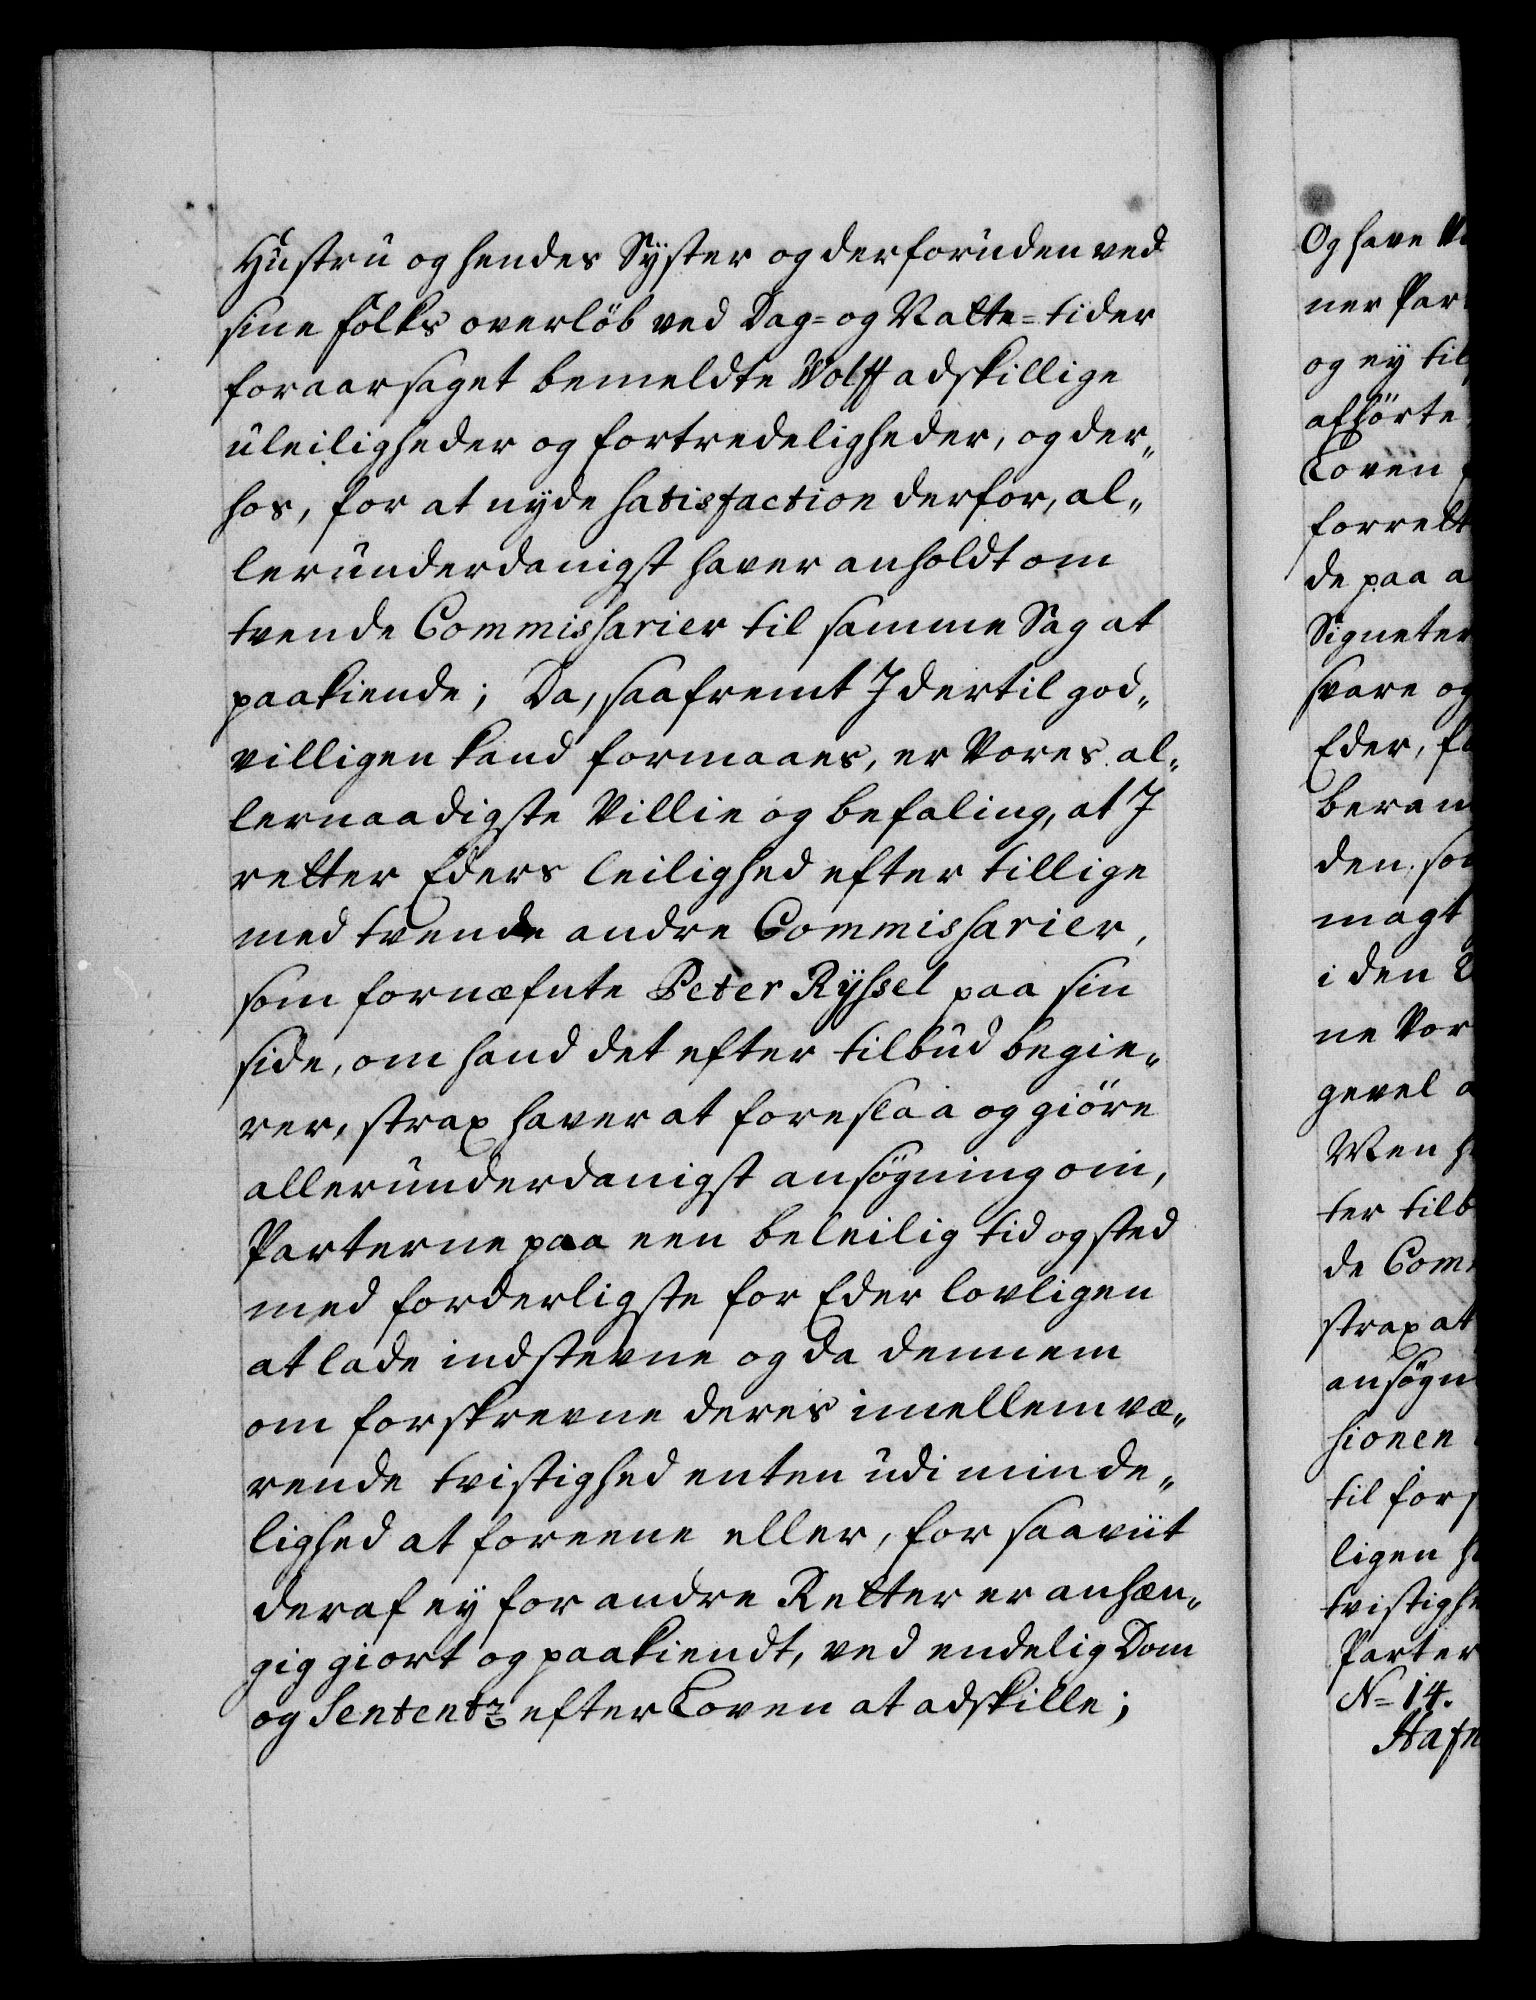 Hustru og hendes Syster og derforuden ved
sine folks overløb ved Dag= og Natte=tider
foraarsaget bemeldte Wolff adskillige
uleiligheder og fortredeligheder, og der„
hos, for at nyde satisfaction derfor, al„
lerunderdanigst haver anholdt om
tvende Commissarier til samme Sag at
paakiende; Da, saafremt I dertil god„
villigen kand formaaes, er Vores al„
lernaadigste Villie og befaling, at I
retter Eders leilighed efter tillige
med tvende andre Commissarier,
som fornæfnte Peter Ryssel paa sin
side, om hand det efter tilbud begie„
rer, strax haver at foreslaa og giöre
allerunderdanigst ansögning om,
Parterne paa een beleilig tid og sted
med forderligste for Eder lovligen
at lade indstevne og da dennem
om forskrevne deres imellem væ„
rende tvistighed enten udi minde„
lighed at foreene eller, for saaviit
deraf ey for andre Retter er anhæn„
gig giort og paakiendt, ved endelig Dom
og Sententz efter Loven at adskille;
Og have
ner Par
og ey til
afhörte
Loven
forrett
de paa a
Signeter
svare og
Eder,
beram
den
magt
i den
ne Vor
gevel
Men
ter tilb
de Com
strax at
ansögn
sionen
til for
ligen
tvistighe
Parter
N= 14.
Hafn